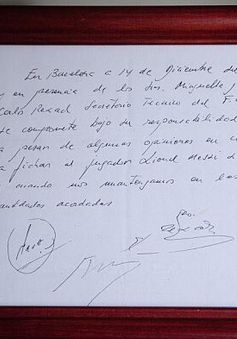 En Barcelona a 14 de Diciembre del
y en presencia de los Srs. Minguella y
Carles Rexach Secretario Tecnico del F
se compromete bajo su responsabilidad
a pesar de algunas opiniones en co
a fichar al jugador Lionel Messi s
cuando nos mantengamos en las
cantidades acordadas